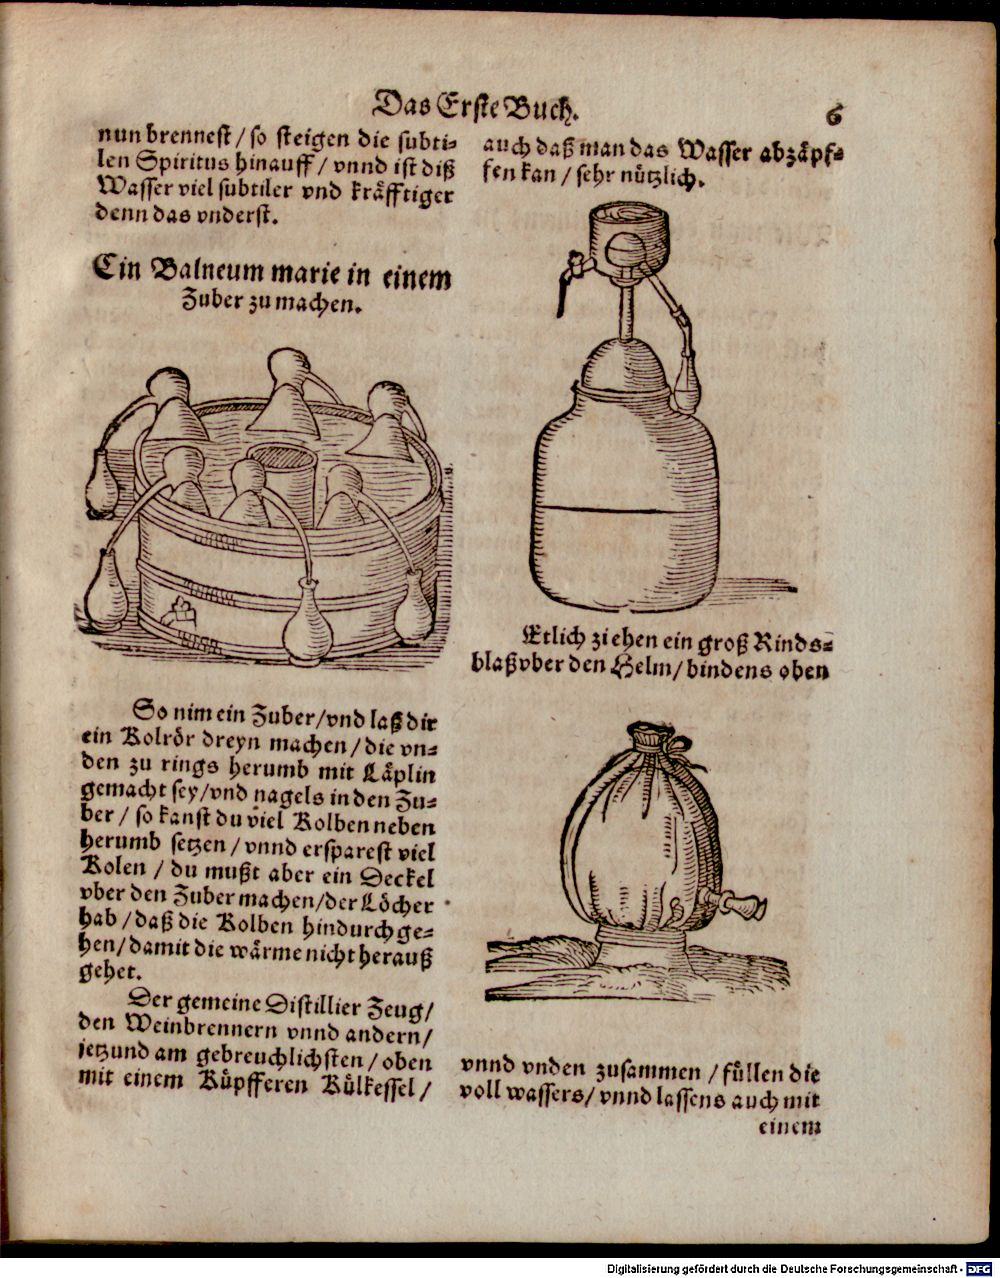 Das Erste Buch.
6
nun brennest / so steigen die subti-
len Spiritus hinauff / vnnd ist diß
Wasser viel subtiler vnd kräfftiger
denn das vnderst.
Ein Balneum marie in einem
Zuber zu machen.
So nim ein Zuber/vnd laß dir
ein Kolrör dreyn machen / die vn-
den zu rings herumb mit Läplin
gemacht sey/vnd nagels in den Zu-
ber / so kanst du viel Kolben neben
herumb setzen / vnnd ersparest viel
Kolen / du mußt aber ein Deckel
vber den Zuber machen/der Löcher
hab / daß die Kolben hindurch ge-
hen/damit die wärme nicht herauß
gehet.
Der gemeine Distillier Zeug/
den Weinbrennern vnnd andern/
jetzund am gebreuchlichsten / oben
mit einem Küpfferen Külkessel /
auch daß man das Wasser abzäpf-
fen kan / sehr nützlich.
Etlich ziehen ein groß Rinds-
blaß vber den Helm/ bindens oben
vnnd vnden zusammen / füllen die
voll wassers/ vnnd lassens auch mit
einem
Digitalisierung gefördert durch die Deutsche Forschungsgemeinschaft - DFG